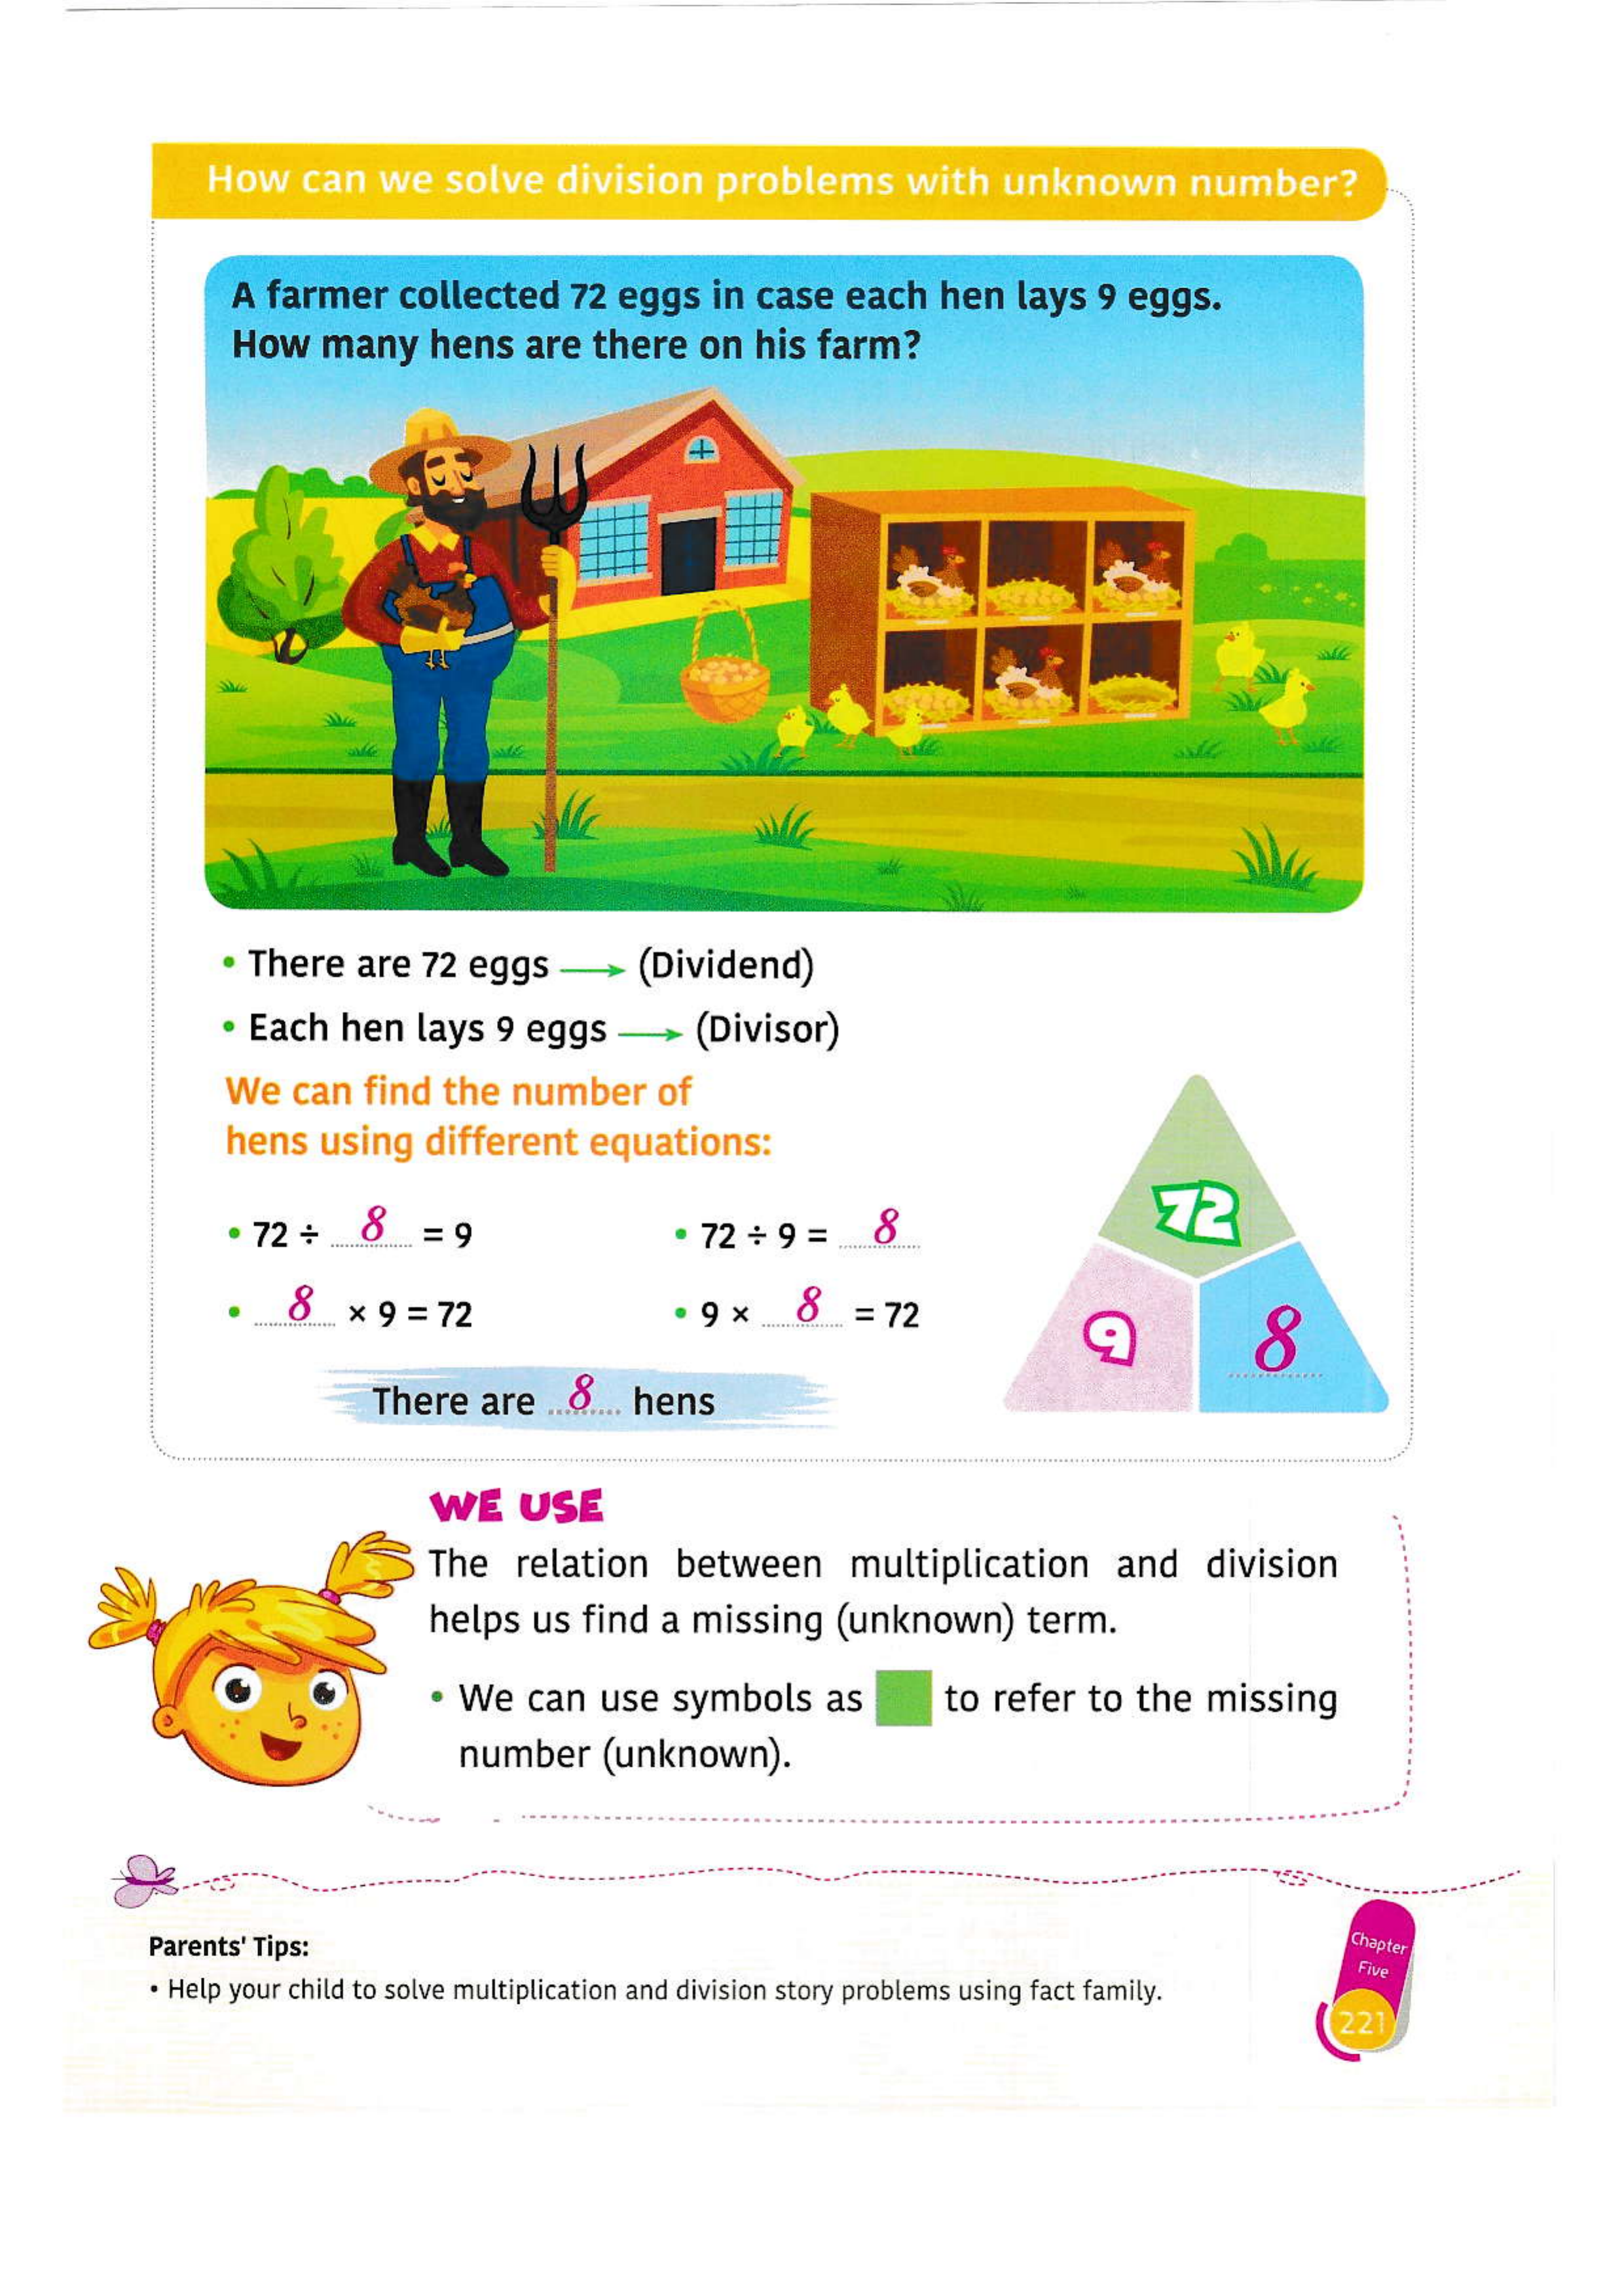 How can we solve division problems with unknown number?
A farmer collected 72 eggs in case each hen lays 9 eggs.
How many hens are there on his farm?
• There are 72 eggs → (Dividend)
• Each hen lays 9 eggs → (Divisor)
We can find the number of
hens using different equations:
• 72 ÷ 8 = 9
• 72 ÷ 9 = 8
• 8 × 9 = 72
• 9 × 8 = 72
72
9
8
There are 8 hens
WE USE
The relation between multiplication and division
helps us find a missing (unknown) term.
• We can use symbols as to refer to the missing
number (unknown).
Parents' Tips:
• Help your child to solve multiplication and division story problems using fact family.
Chapter
Five
221